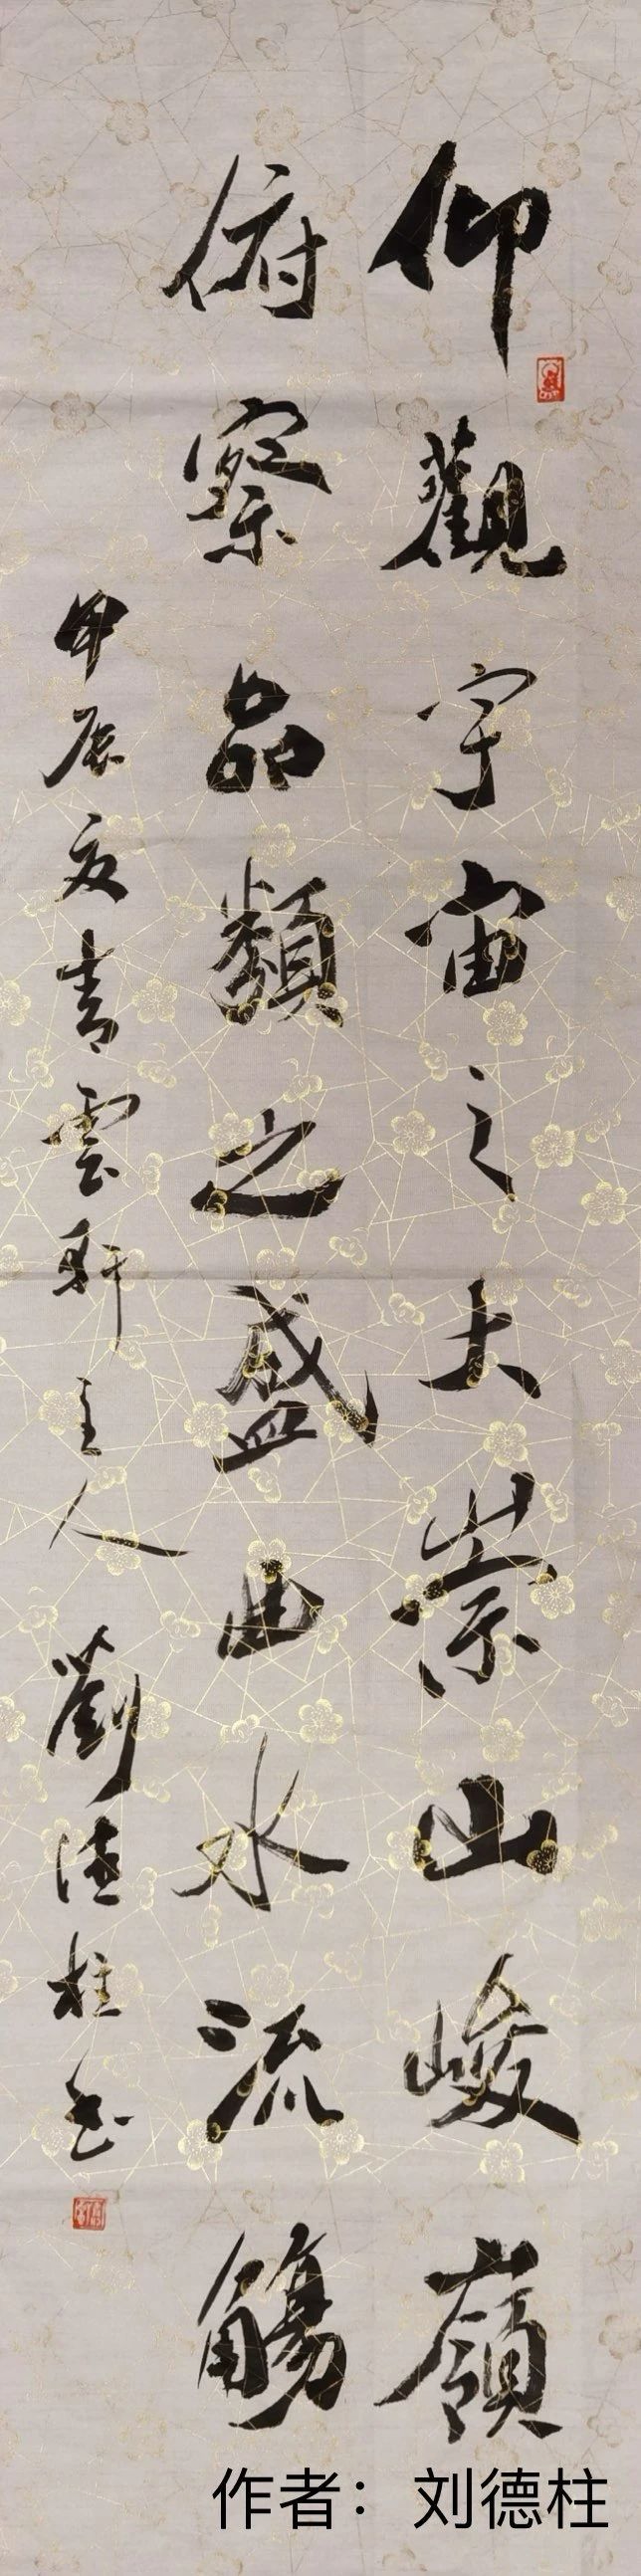 仰觀宇宙之大崇山峻嶺
俯察品類之盛曲水流觴
甲辰夏青雲軒主人劉德柱书
作者：刘德柱